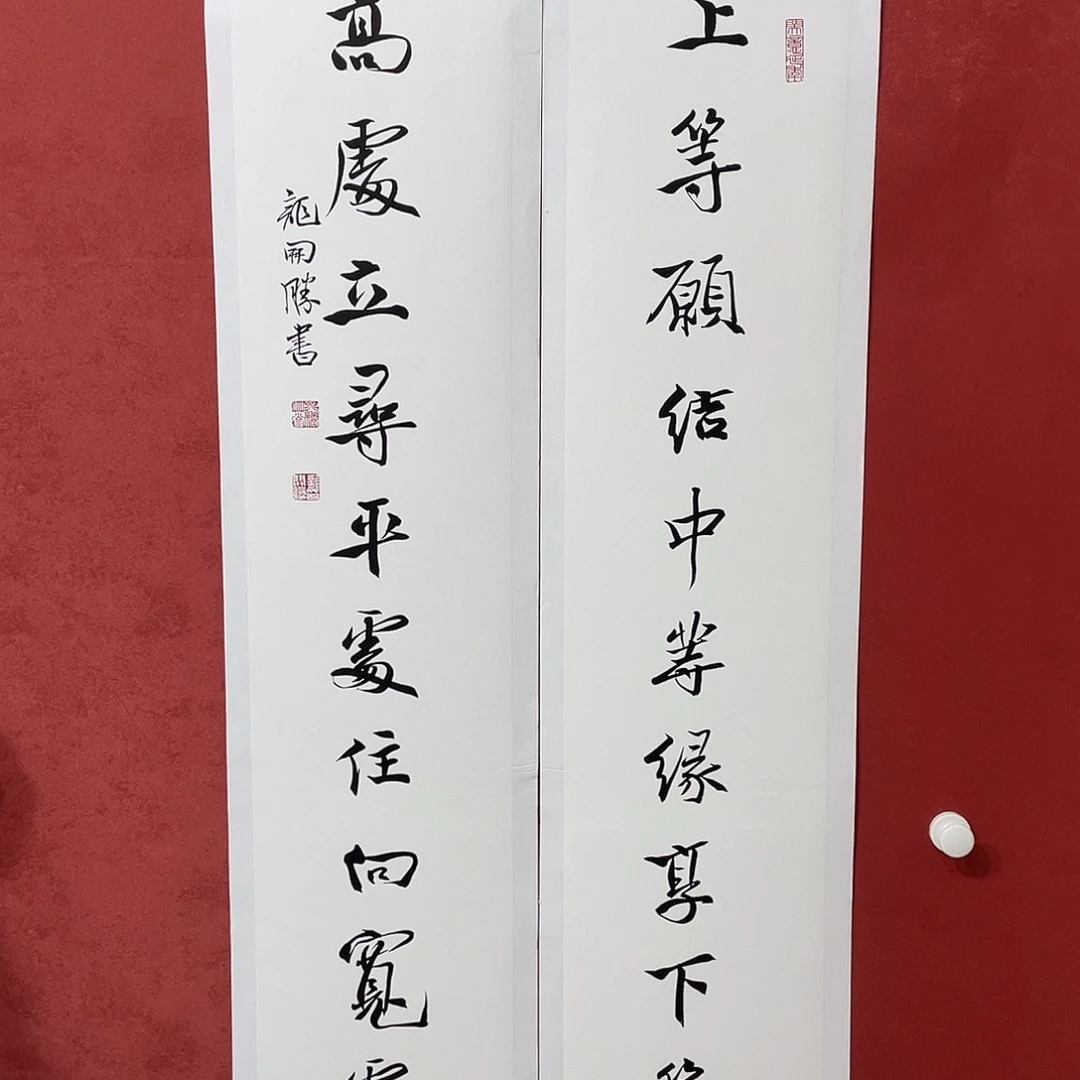 上等願結中等緣享下等
高處立尋平處住向寬處
龍開勝書